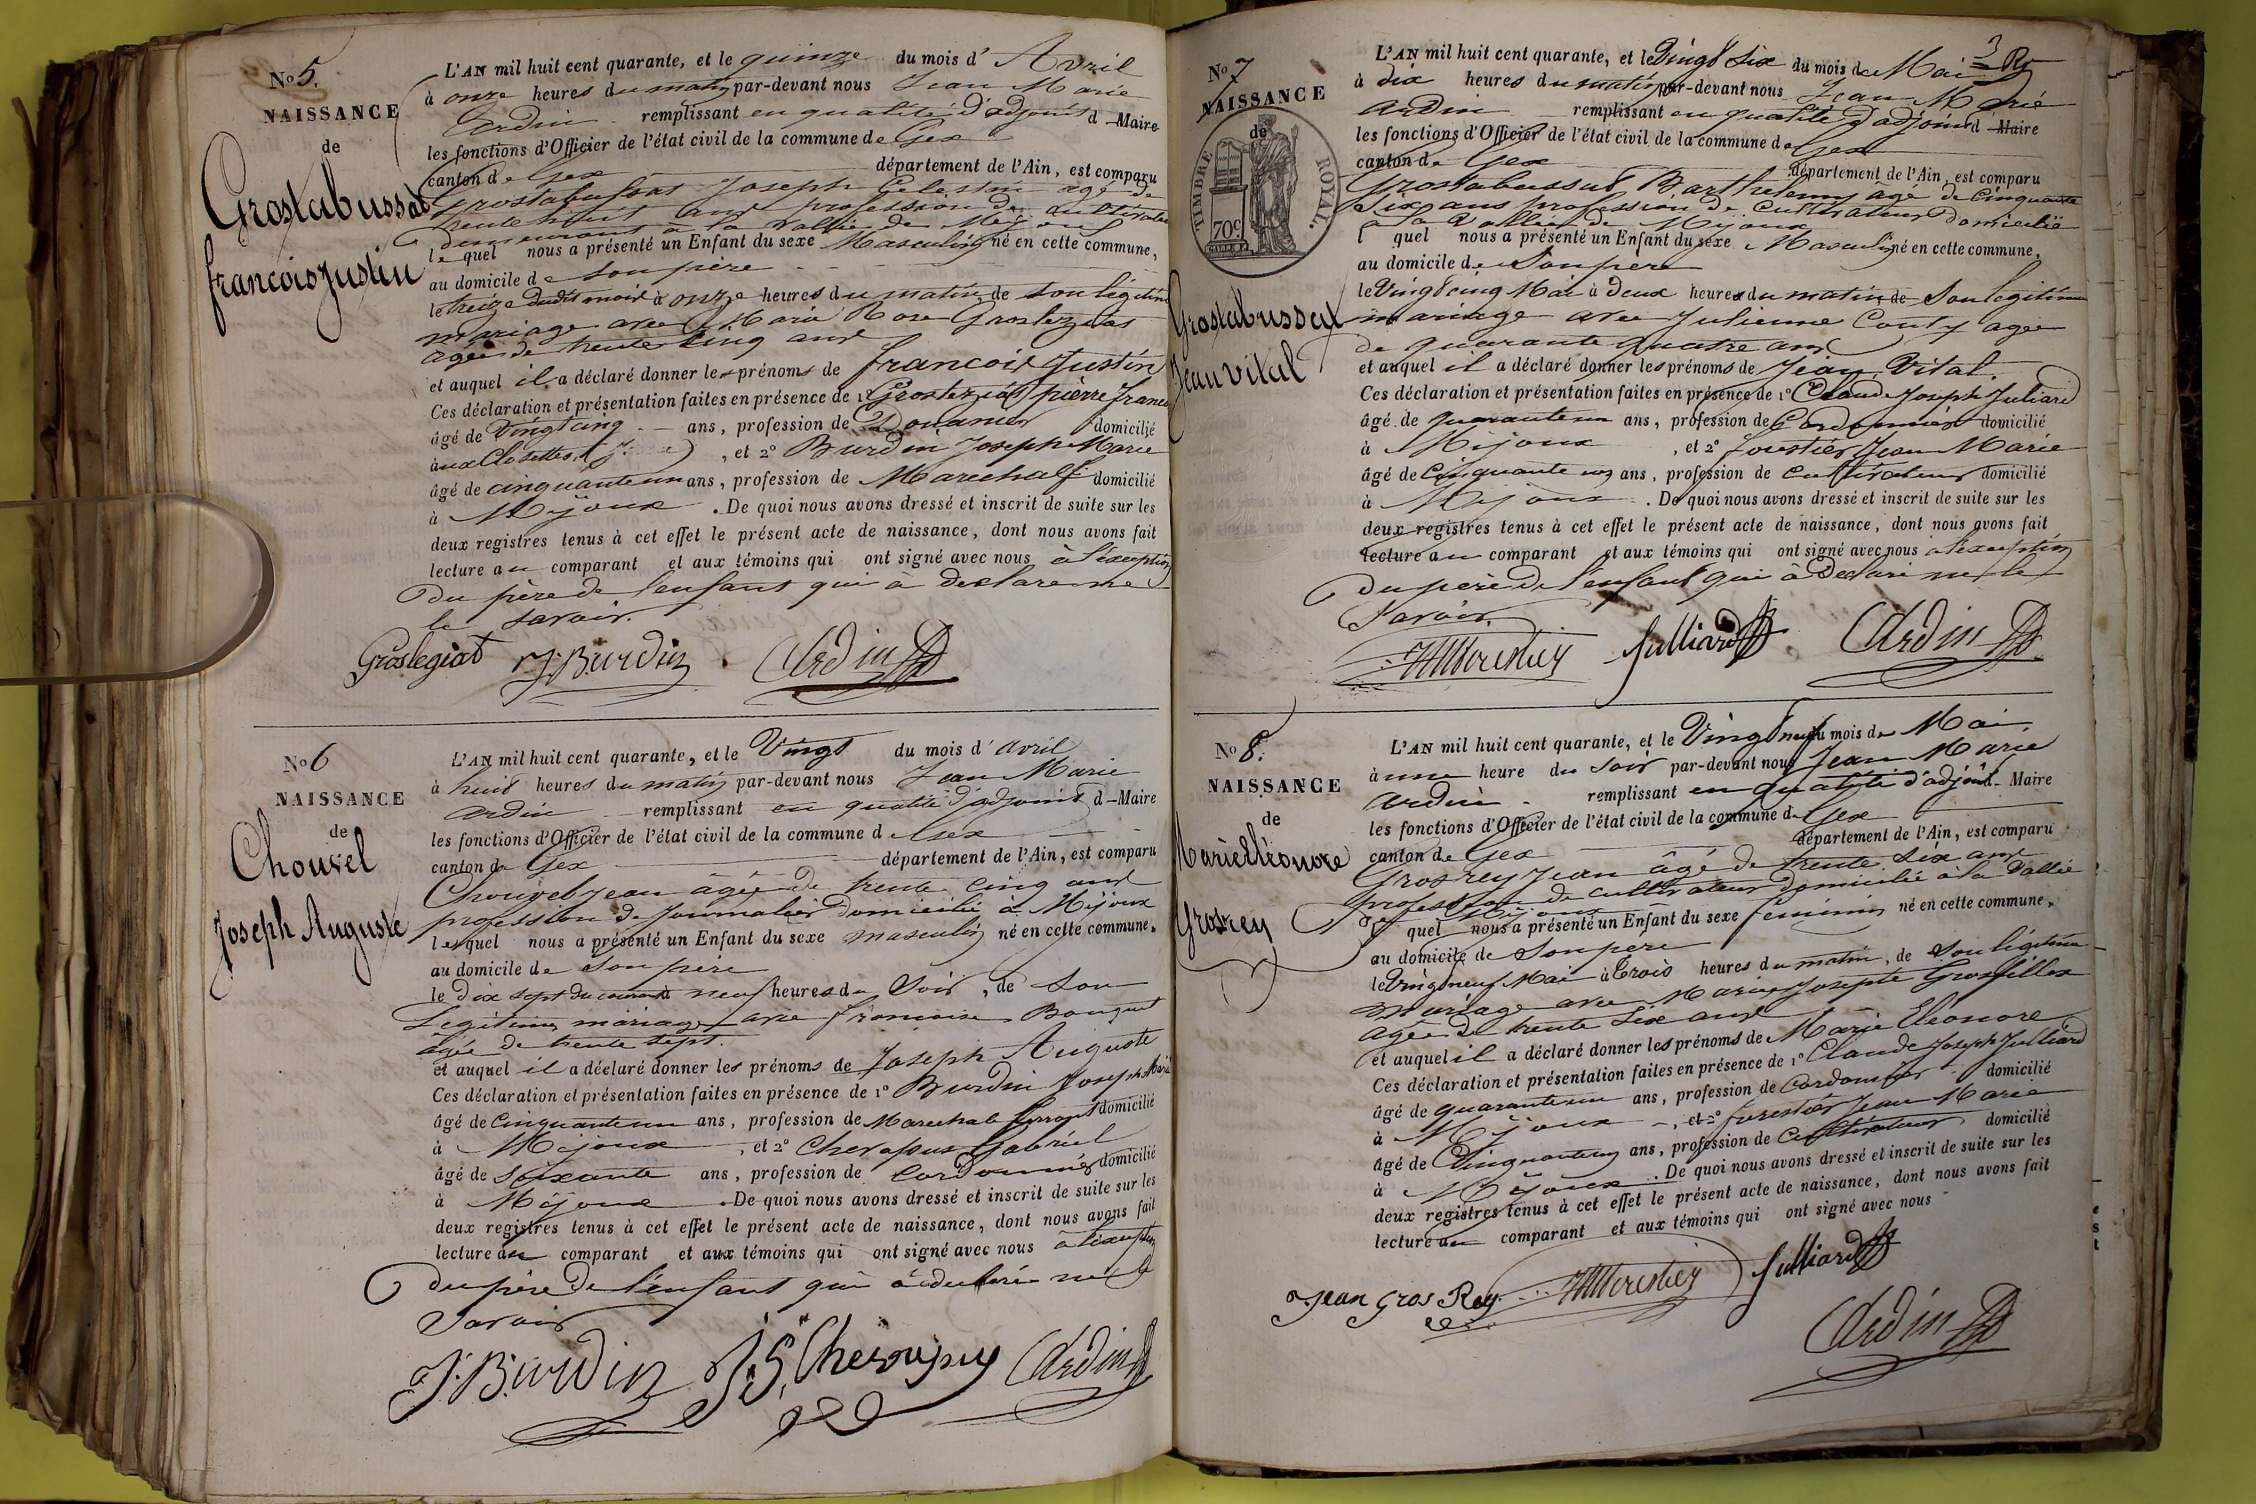 No 5.
NAISSANCE
de
Grostabussat
françois Justin
L'AN mil huit cent quarante, et le quinze du mois d' Avril
à onze heures du matin par-devant nous Jean Marie
Ardin remplissant en qualité d'adjoint d Maire
les fonctions d'Officier de l'état civil de la commune de Gex
canton de Gex département de l'Ain, est comparu
Grostabussat Joseph Celestin agé de
trente huit ans profession de cultivateur
demeurant à la Vallée de Mijoux
lequel nous a présenté un Enfant du sexe Masculin né en cette commune,
au domicile de son père
le treize dudit mois à onze heures du matin, de son légitime
mariage avec Marie Rose
agée de trente cinq ans
et auquel il a déclaré donner les prénoms de françois Justin
Ces déclaration et présentation faites en présence de 1º pierre
âgé de Vingt cinq ans, profession de Douanier domicilié
aux , et 2º Burdin Joseph Marie
âgé de cinquante un ans, profession de Marechal domicilié
à Mijoux . De quoi nous avons dressé et inscrit de suite sur les
deux registres tenus à cet effet le présent acte de naissance, dont nous avons fait
lecture au comparant et aux témoins qui ont signé avec nous à l'exception
du père de l'enfant qui à declaré ne
le savoir.
Groslegiat J. Burdin Ardin
No 6
NAISSANCE
de
Chouvel
Joseph Auguste
L'AN mil huit cent quarante, et le Vingt du mois d' avril
à huit heures du matin par-devant nous Jean Marie
Ardin remplissant en qualité d'adjoint d Maire
les fonctions d'Officier de l'état civil de la commune d Gex
canton de Gex département de l'Ain, est comparu
Chouvel Jean âgée de trente cinq ans
profession de Journalier domicilié à Mijoux
lequel nous a présenté un Enfant du sexe masculin né en cette commune,
au domicile de son père
le Dix sept du courant à neuf heures du Soir, de son
Légitime mariage avec françoise Bouquet
âgée de trente sept.
et auquel il a déclaré donner les prénoms de Joseph Auguste
Ces déclaration et présentation faites en présence de 1º Burdin Joseph Marie
âgé de Cinquante un ans, profession de Marechal ferrant domicilié
à Mijoux , et 2º Gabriel
âgé de Soixante ans, profession de Cordonnier domicilié
à Mijoux . De quoi nous avons dressé et inscrit de suite sur les
deux registres tenus à cet effet le présent acte de naissance, dont nous avons fait
lecture au comparant et aux témoins qui ont signé avec nous à l'exception
du père de l'enfant qui à déclaré ne le
Savoir
J. Burdin Ardin
No 7
NAISSANCE
de
TIMBRE ROYAL.
70c
Grostabussat
Jean Vital
L'AN mil huit cent quarante, et le Vingt Six du mois de Mai
à Dix heures du matin par-devant nous Jean Marie
Ardin remplissant en qualité d'adjoint d Maire
les fonctions d'Officier de l'état civil de la commune de Gex
canton de Gex département de l'Ain, est comparu
Grostabussat Barthelemy âgé de Cinquante
Six ans profession de Cultivateur domicilié
a la Vallée de Mijoux
l quel nous a présenté un Enfant du sexe Masculin né en cette commune,
au domicile de Son père
le Vingt cinq Mai à Deux heures du matin, de Son legitime
mariage avec Julienne Couty agée
de quarante quatre ans
et auquel il a déclaré donner les prénoms de Jean Vital.
Ces déclaration et présentation faites en présence de 1º Claude Joseph Julliard
âgé de quarante un ans, profession de Cordonnier domicilié
à Mijoux , et 2º forestier Jean Marie
âgé de Cinquante un ans, profession de Cultivateur domicilié
à Mijoux . De quoi nous avons dressé et inscrit de suite sur les
deux registres tenus à cet effet le présent acte de naissance, dont nous avons fait
lecture au comparant et aux témoins qui ont signé avec nous à l'exception
du père de l'enfant qui à Déclaré ne le
Savoir.
Julliard Ardin
No 8.
NAISSANCE
de
Marie Eléonore
Grosrey
L'AN mil huit cent quarante, et le Vingt neuf du mois de Mai
à une heure du Soir par-devant nous Jean Marie
Ardin remplissant en qualité d'adjoint d Maire
les fonctions d'Officier de l'état civil de la commune de Gex
canton de Gex département de l'Ain, est comparu
Grosrey Jean âgé de trente Six ans
profession de cultivateur domicilié à la Vallée
de Mijoux
l quel nous a présenté un Enfant du sexe féminin né en cette commune,
au domicile de Son père
le Vingt neuf Mai à Trois heures du matin, de son légitime
mariage avec Marie Josephte
agée de trente Six ans
et auquel il a déclaré donner les prénoms de Marie Eleonore
Ces déclaration et présentation faites en présence de 1º Claude Joseph Julliard
âgé de quarante un ans, profession de Cordonnier domicilié
à Mijoux , et 2º forestier Jean Marie
âgé de Cinquante un ans, profession de Cultivateur domicilié
à Mijoux . De quoi nous avons dressé et inscrit de suite sur les
deux registres tenus à cet effet le présent acte de naissance, dont nous avons fait
lecture au comparant et aux témoins qui ont signé avec nous
Jean Gros Rey Julliard
Ardin